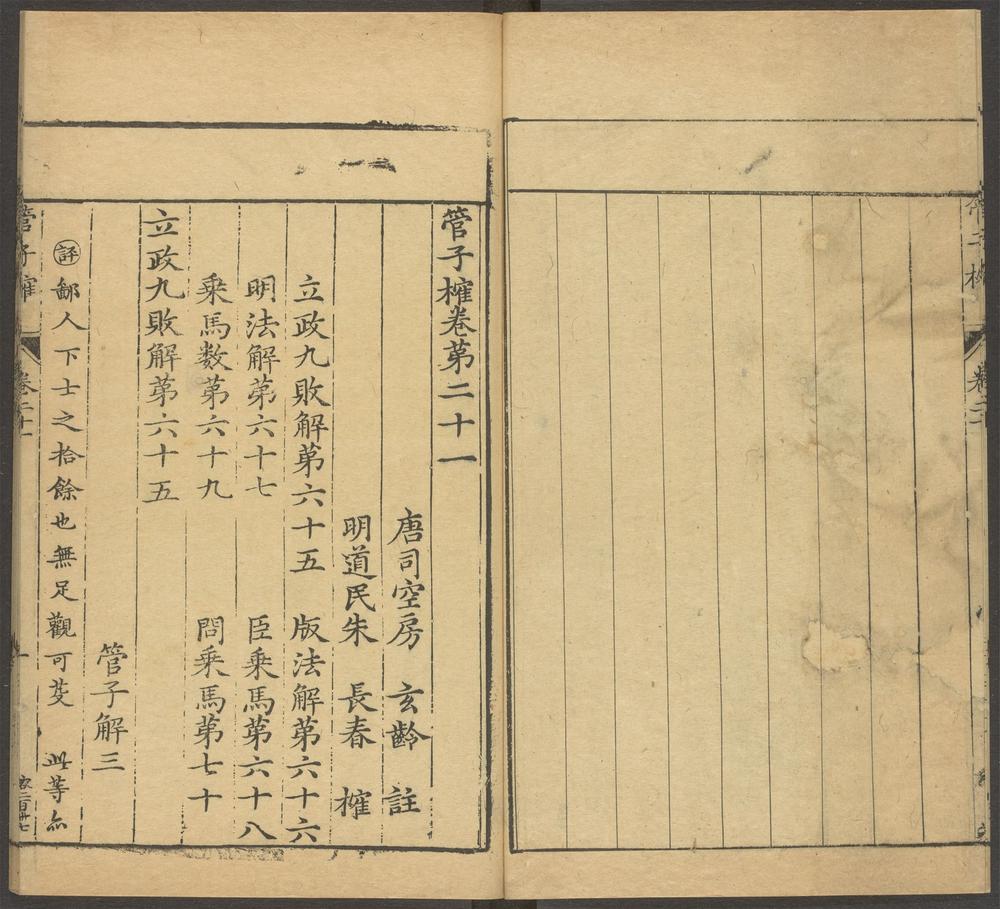 管子榷
管子榷卷第二十一
唐司空房 玄齡 註
明道民朱 長春 榷
立政九敗解第六十五 版法解第六十六
明法解第六十七 臣乘馬第六十八
乘馬数第六十九 問乘馬第七十
立政九敗解第六十五
管子解三
評鄙人下士之拾餘也無足觀可芟 此等亦
管子榷 卷二十一 一